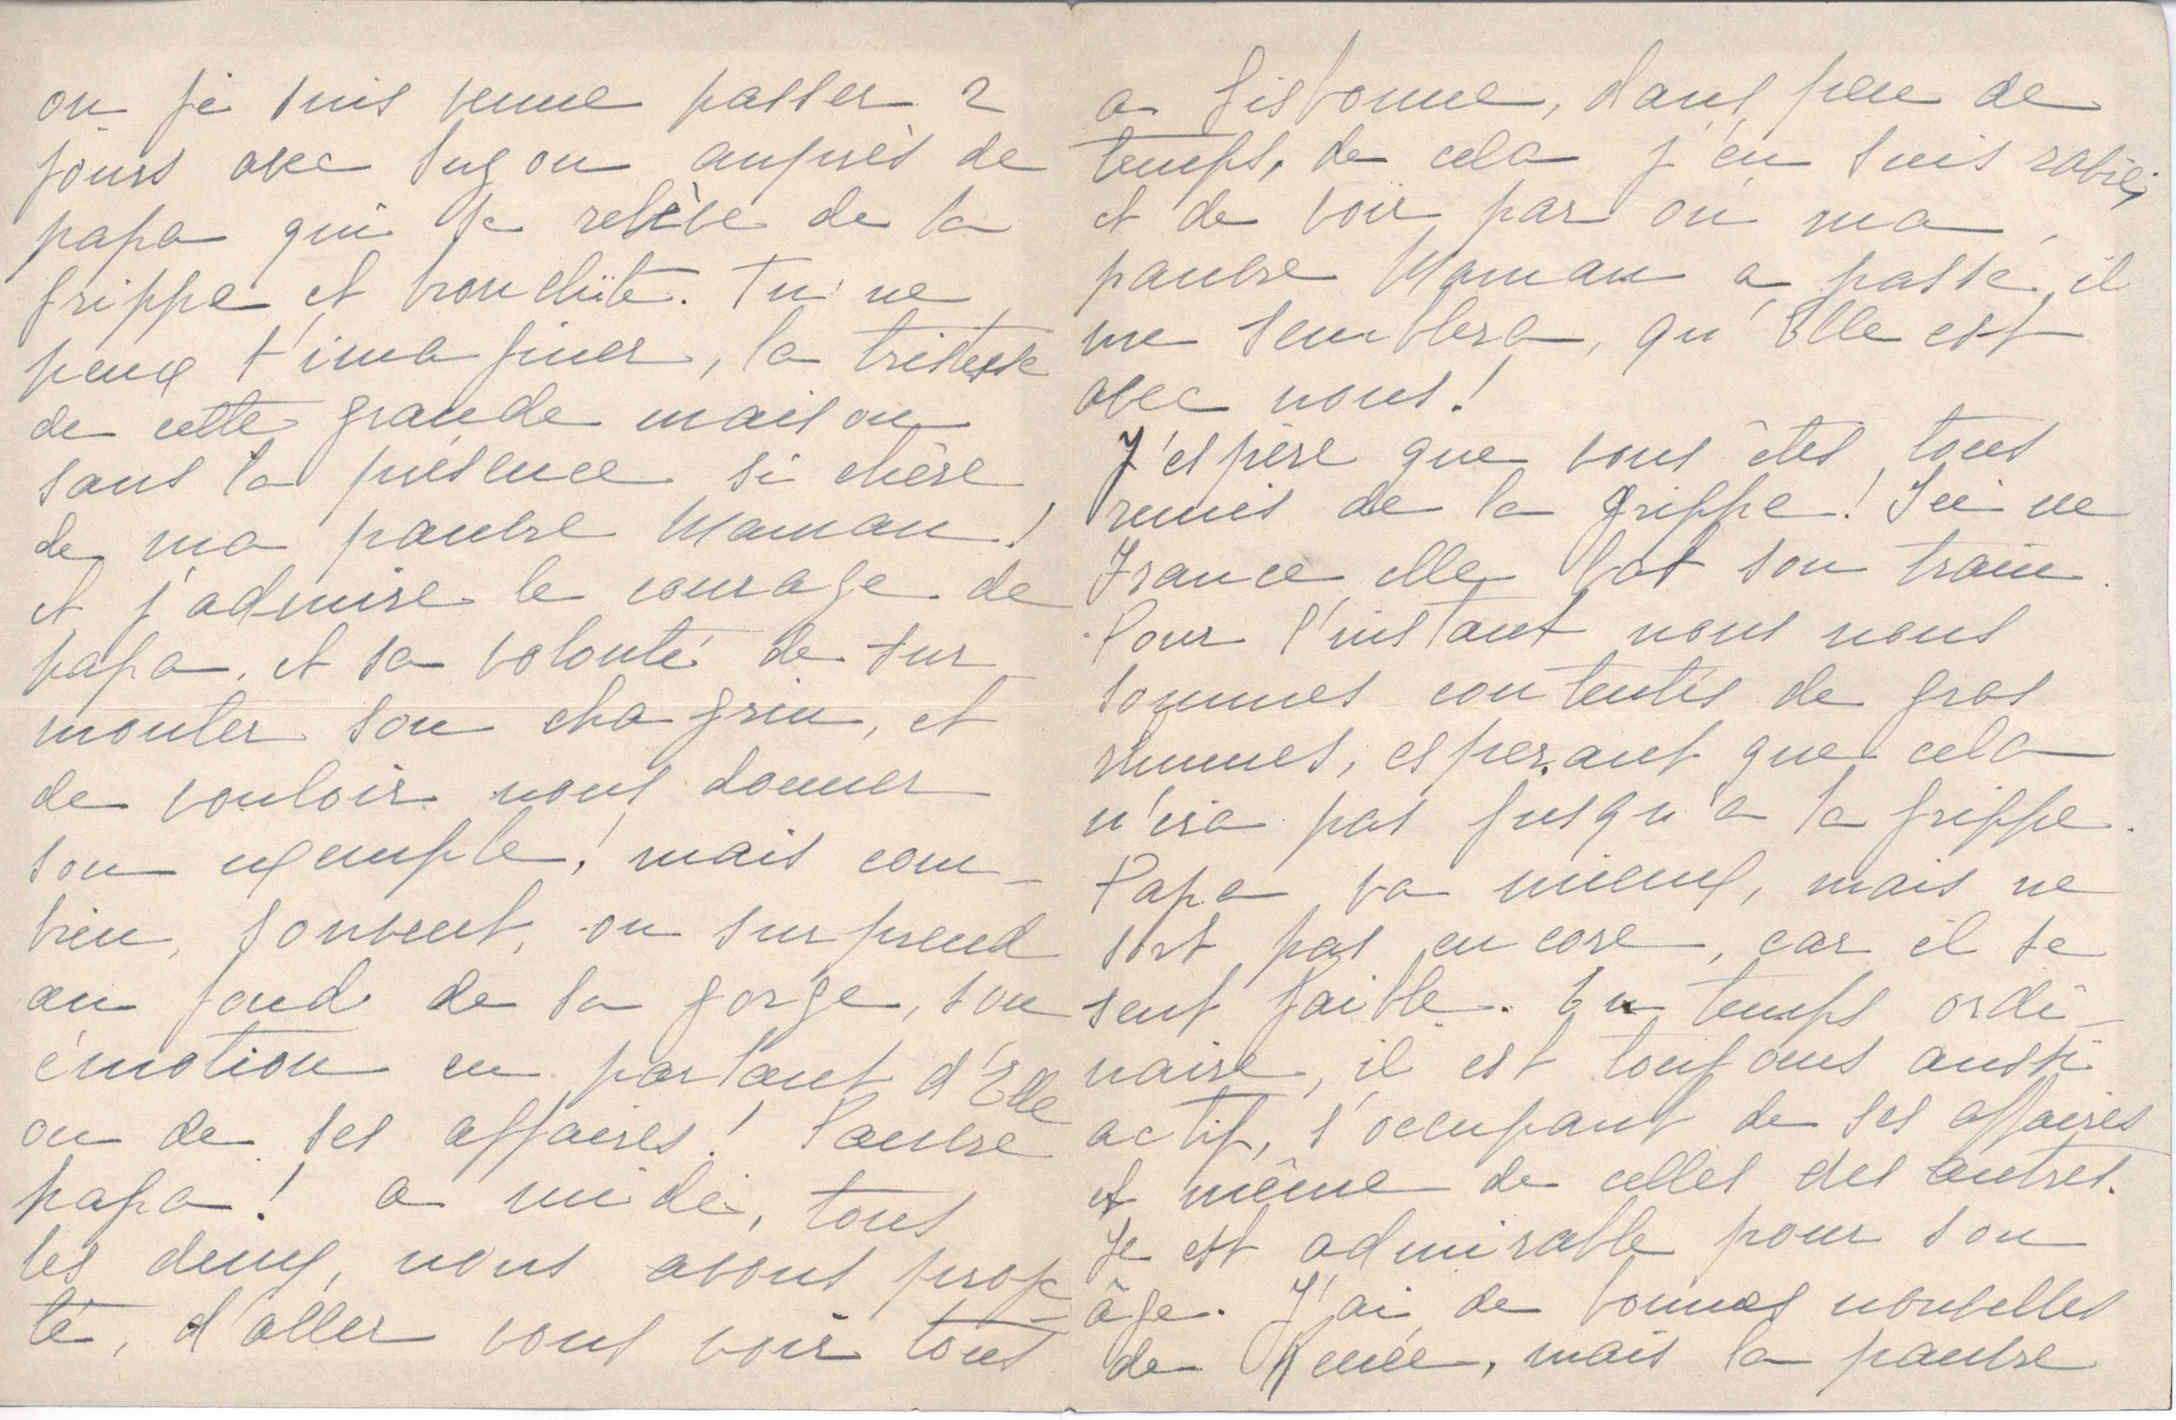 ou je suis venue passer 2
jours avec Suzon auprès de
papa qui se relève de la
grippe et bronchite. Tu ne
peux t'imaginer, la tristesse
de cette grande maison
sans la présence si chère
de ma pauvre Maman!
et j'admire le courage de
papa, et sa volonté de sur
monter son chagrin, et
de vouloir nous donner
son exemple! mais com-
bien, souvent, on surprend
au fond de sa gorge, son
émotion en parlant d'Elle
ou de ses affaires! Pauvre
papa! a midi, tous
les deux, nous avons proje-
té, d'aller vous voir tous
a Lisbonne, dans peu de
temps, de cela j'en suis ravie,
et de voir par où ma
pauvre Maman a passé, il
me semblera, qu'Elle est
avec nous!
J'espère que vous êtes tous
remis de la grippe! Ici en
France elle bat son train.
Pour l'instant nous nous
sommes contentés de gros
rhumes, esperant que cela
n'ira pas jusqu'a la grippe.
Papa va mieux, mais ne
sort pas encore, car il se
sent faible. En temps ordi-
naire, il est toujours aussi
actif, s'occupant de ses affaires
et même de celles des autres.
Je est admirable pour son
âge. J'ai de bonnes nouvelles
de Renée, mais la pauvre